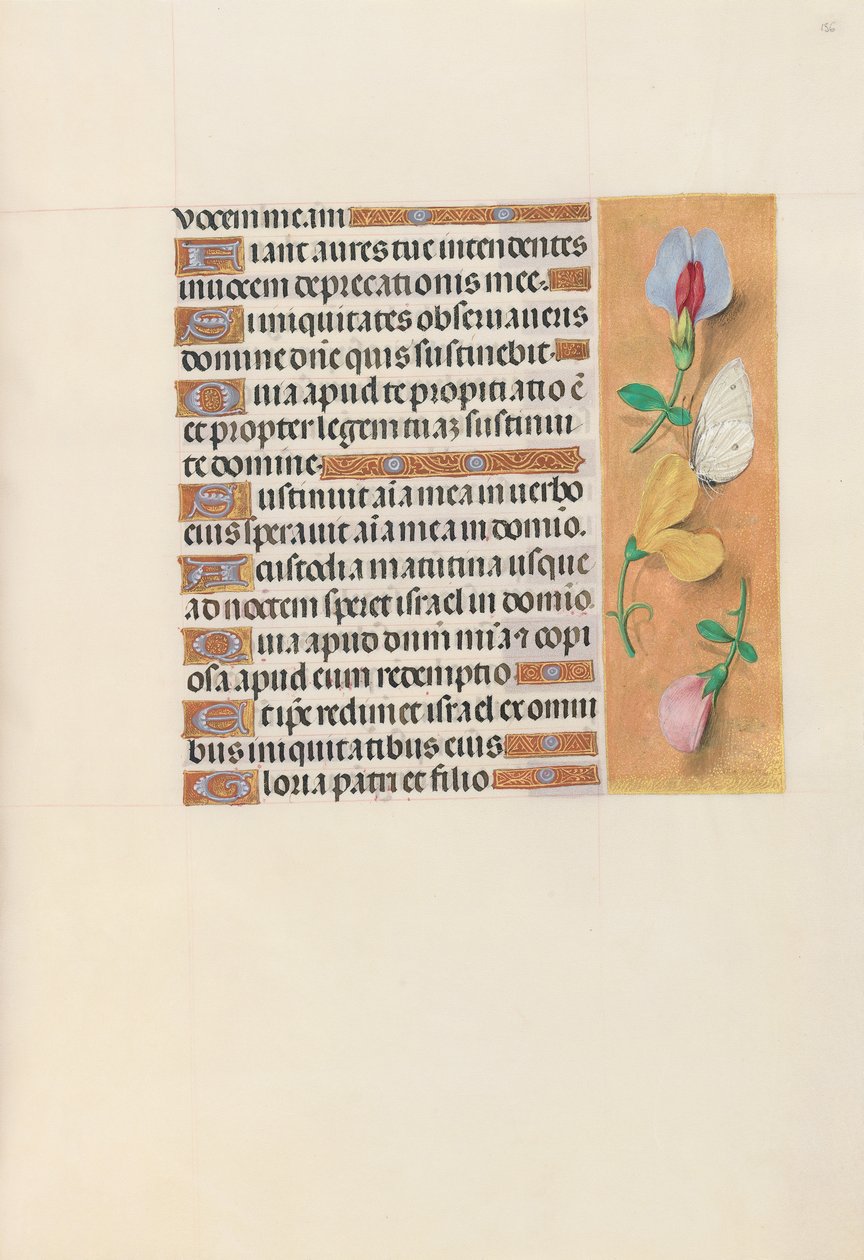 156
vocem meam
Fiant aures tue intendentes
in vocem deprecationis mee.
Si iniquitates observaveris
domine dñe quis sustinebit.
Quia apud te propitiatio ē
et propter legem tuaꝫ sustinui
te domine.
Sustinuit aīa mea in verbo
eius speravit aīa mea in domīo.
A custodia matutina usque
ad noctem speret israel in domīo.
Quia apud dnm mīa ⁊ copi
osa apud eum redemptio
Et ipē redimet israel ex omni
bus iniquitatibus eius
Gloria patri et filio